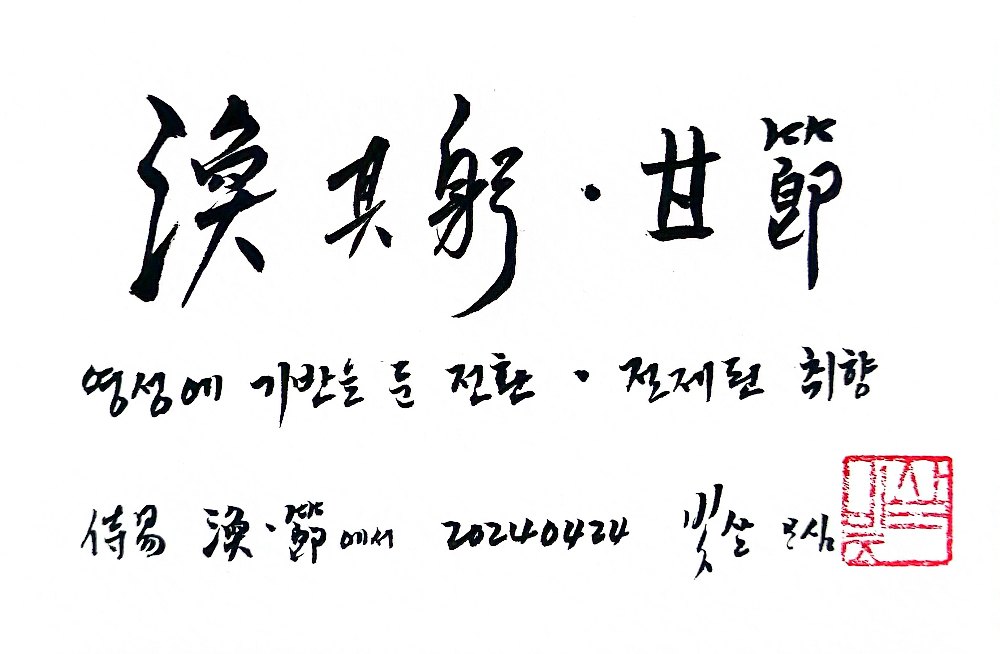 渙其躬 · 甘節
영성에 기반을 둔 전환 · 절제된 취향
侍易 渙·節에서 20240424 빛살 모심
빛살